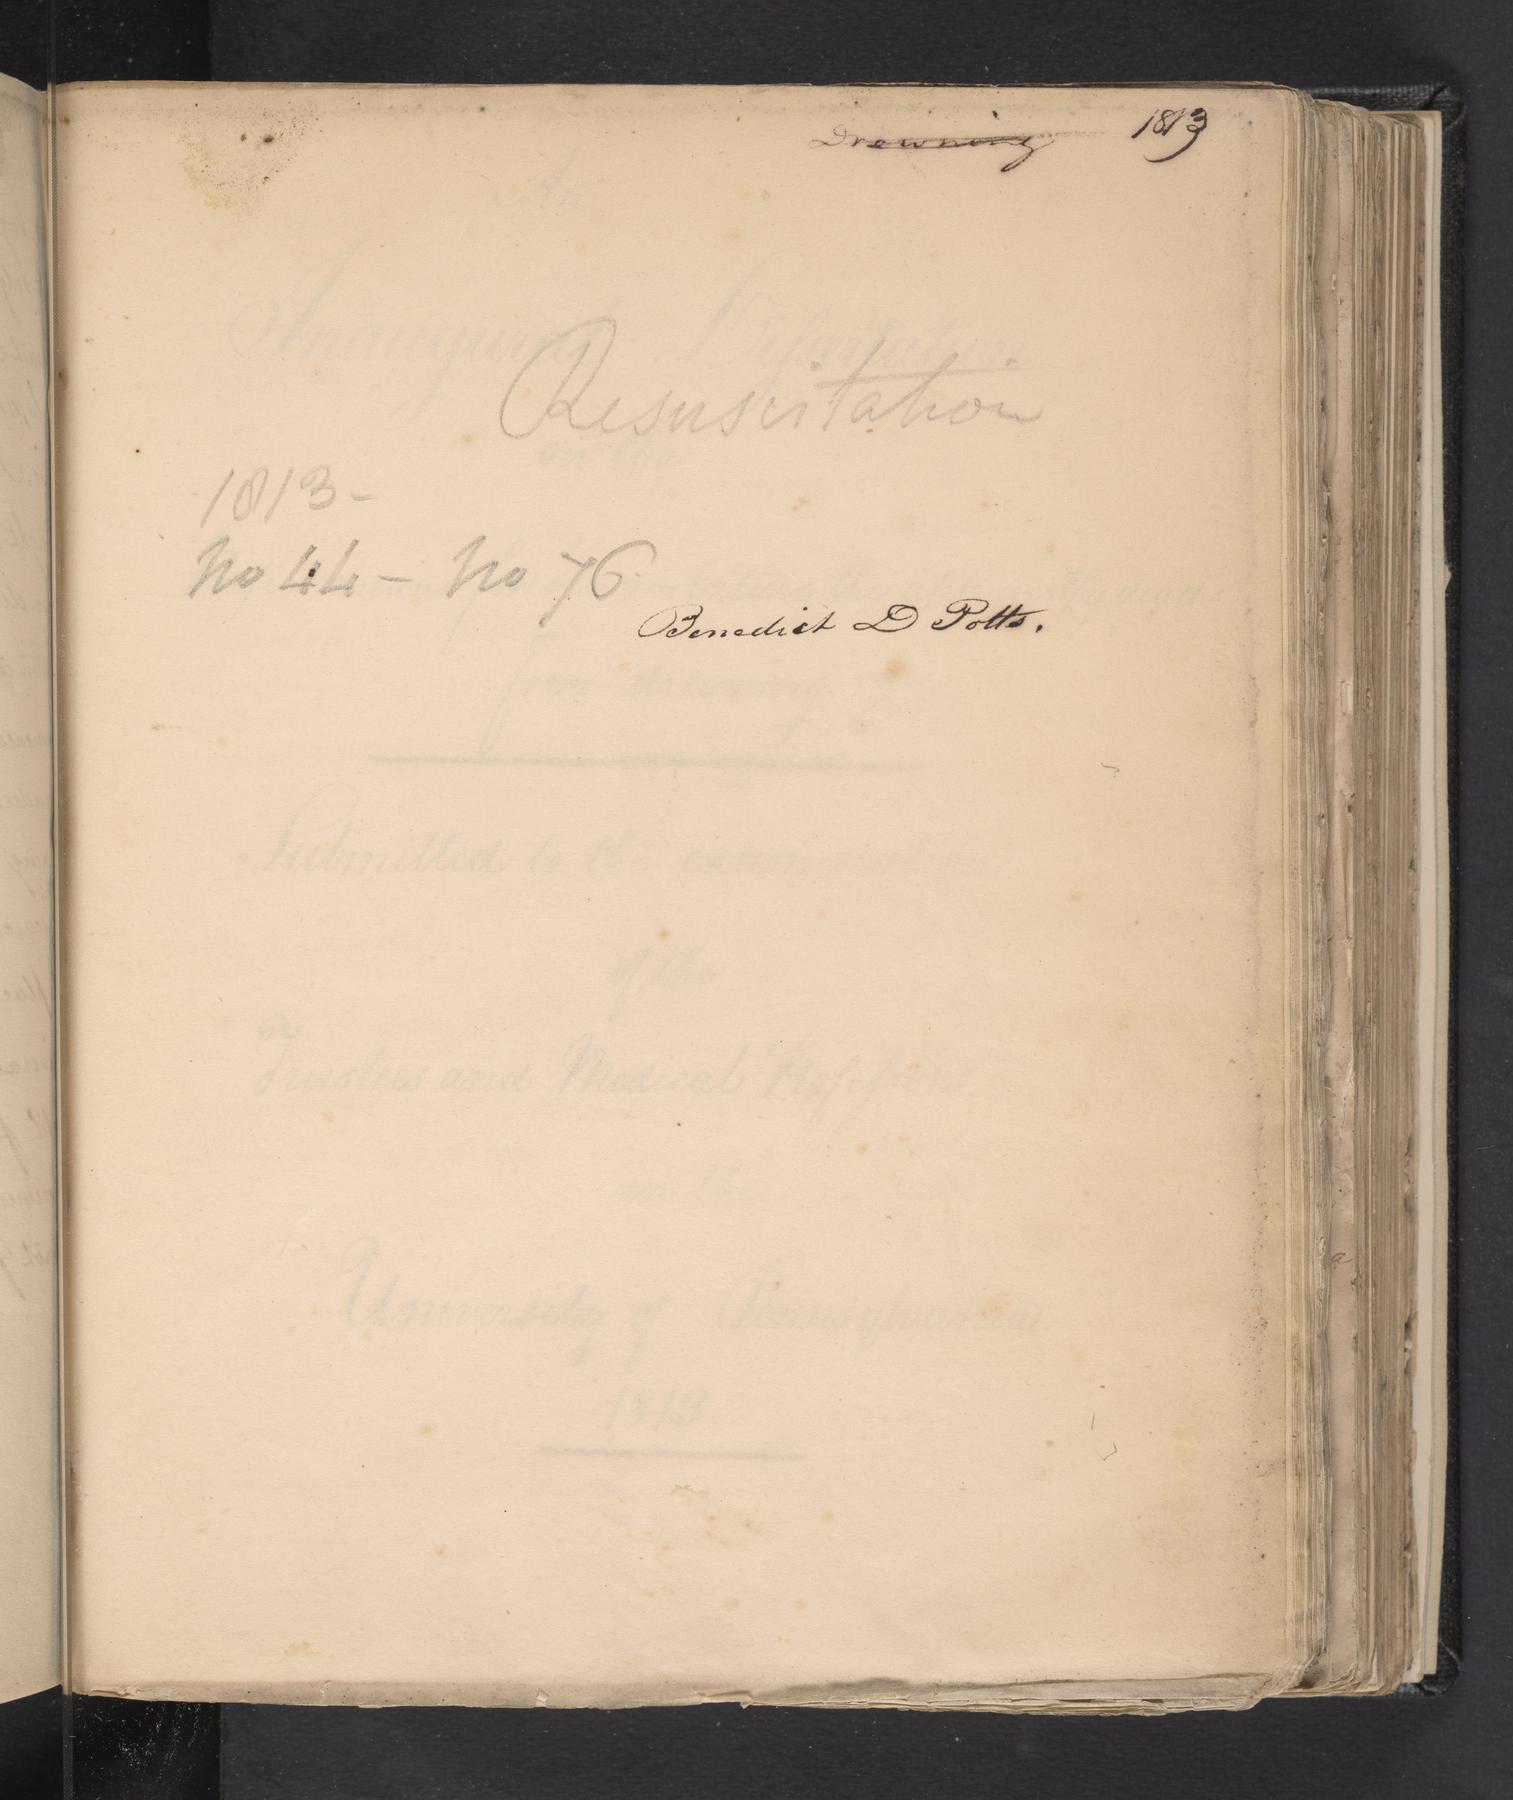 Drowning 1813
An
Inaugural Dissertation
Resuscitation
on the
1813-
No 44 - No 76
Benedict D Potts.
from drowning
Submitted to the examination
of the
Trustees and Medical Professors
in the
University of Pennsylvania
1813